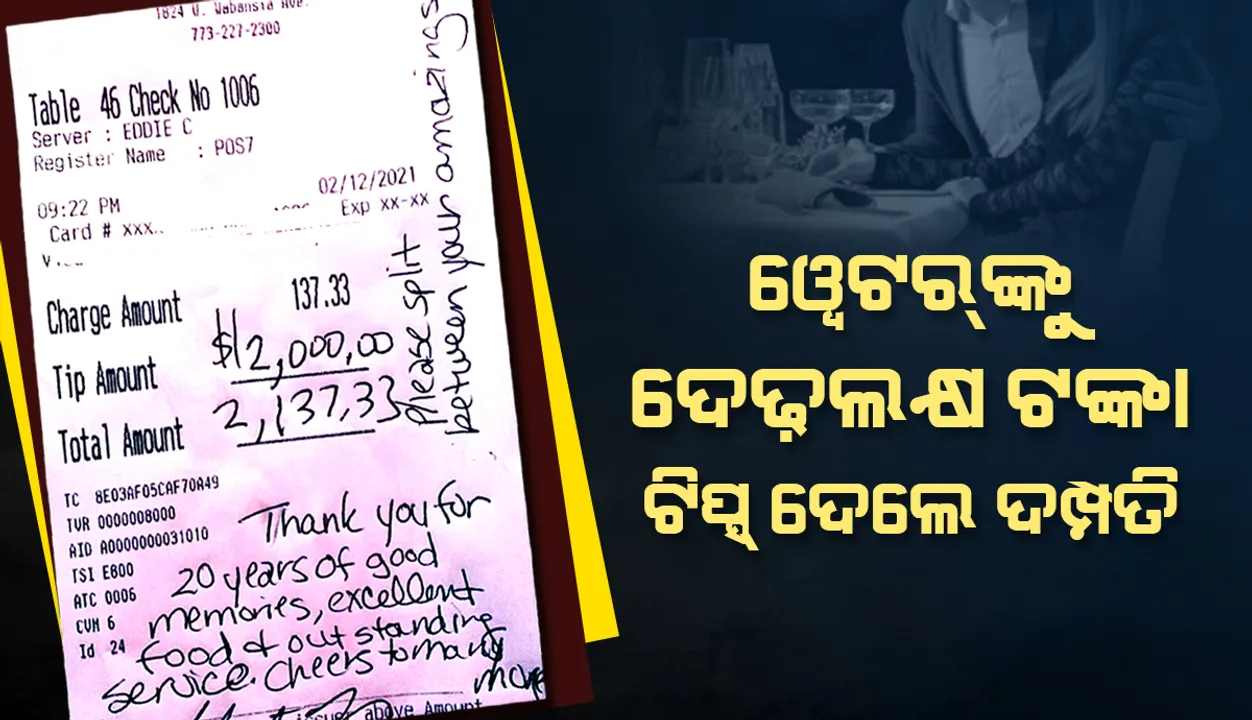 1824 W. Wabansia Ave.
773-227-2300
Table 46 Check No 1006
Server : EDDIE C
Register Name : POS7
02/12/2021
09:22 PM
Exp xx-xx
Card # xxx..
Charge Amount 137.33
Tip Amount $2,000.00
Total Amount 2,137.33
please split
between your amazing s
TC 8E03AF05CAF70A49
TVR 0000008000
AID A0000000031010
TSI E800
ATC 0006
CVM 6
Id 24
Thank you for
20 years of good
memories, excellent
food & outstanding
service. Cheers to many
more
above Amount
ୱେଟରଙ୍କୁ
ଦେଢ଼ଲକ୍ଷ ଟଙ୍କା
ଟିପ୍ସ ଦେଲେ ଦମ୍ପତି